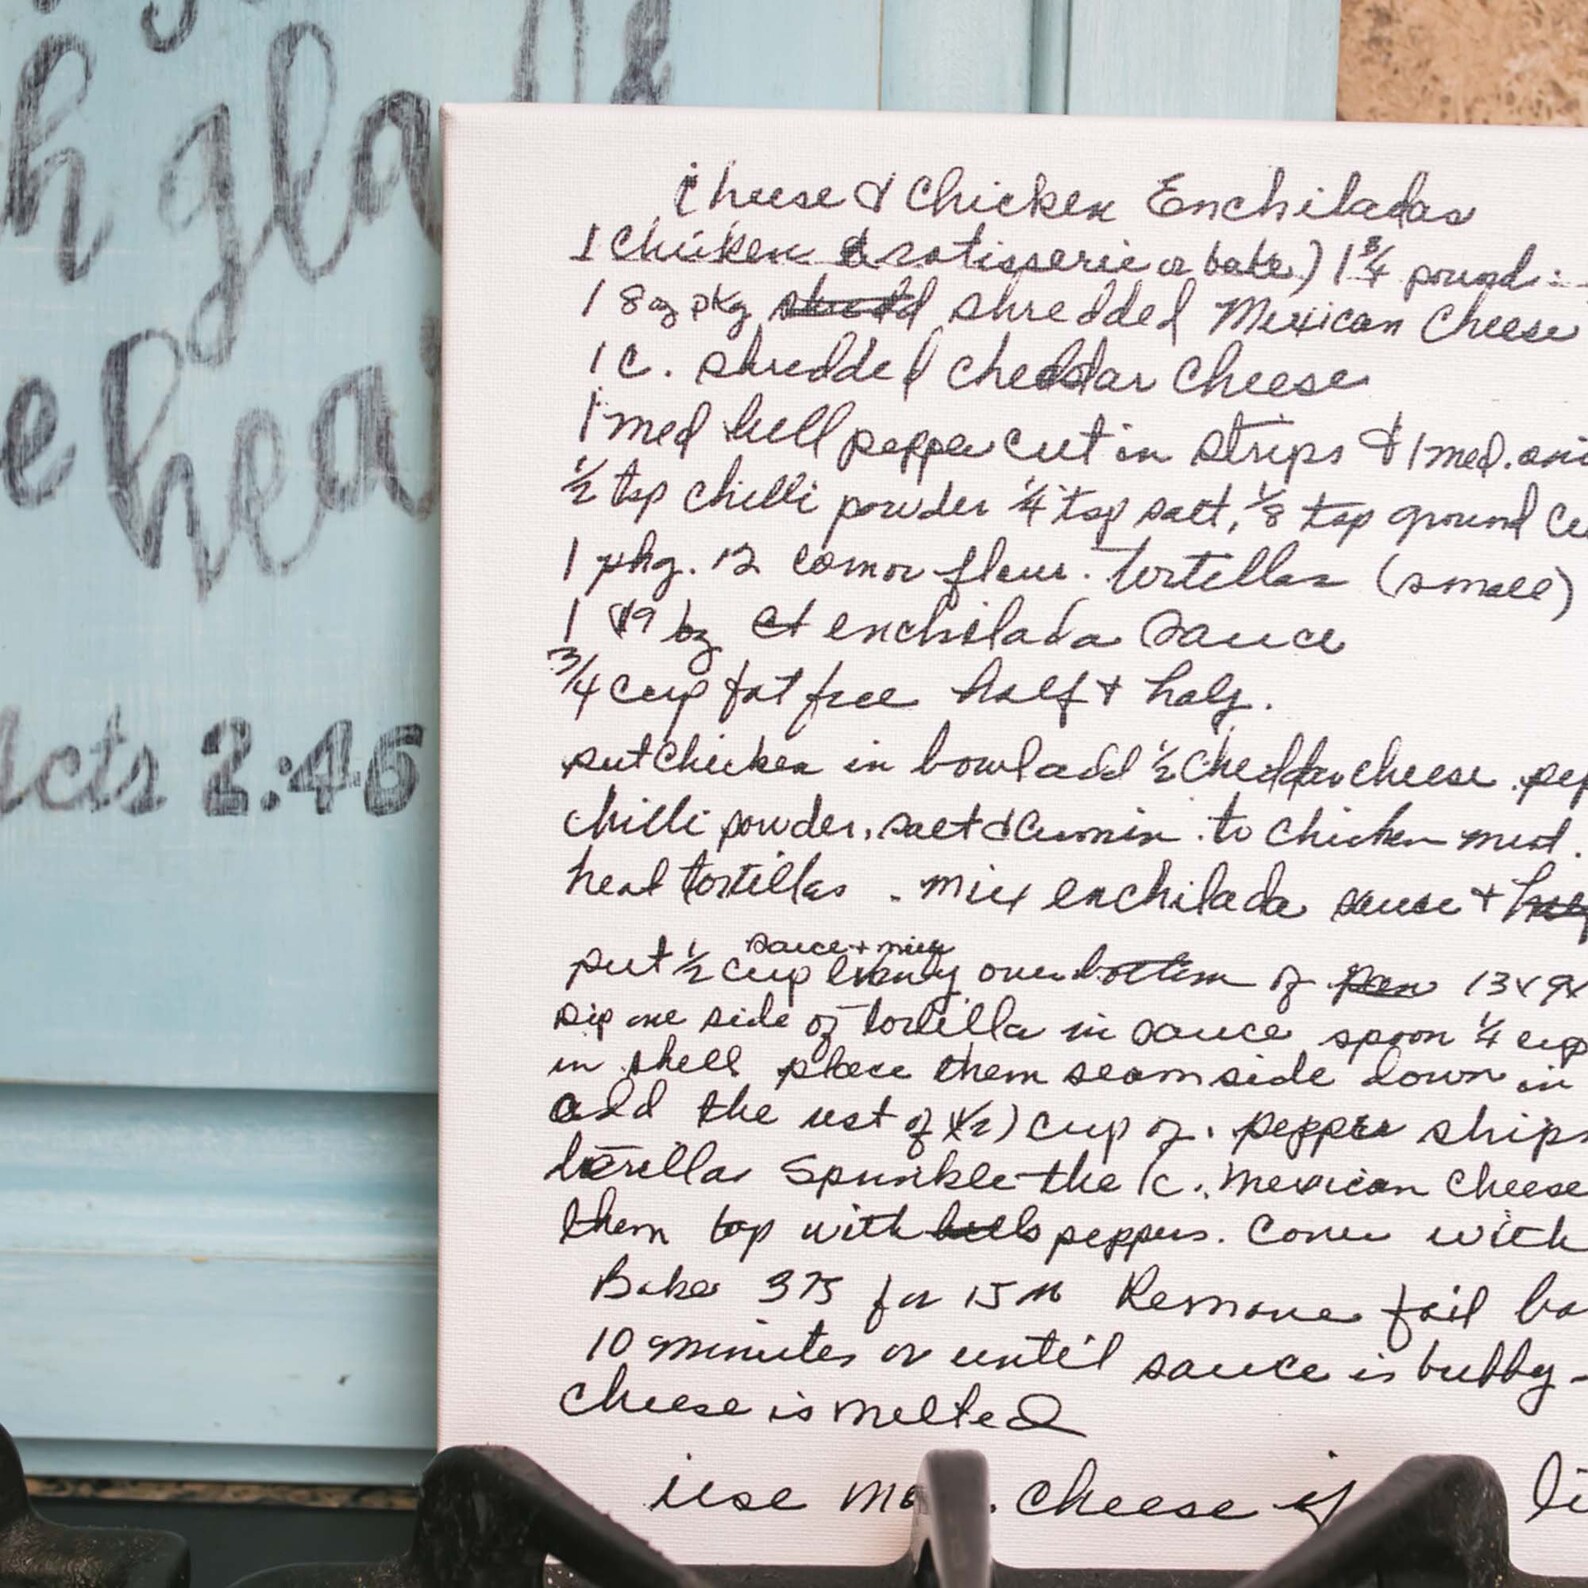 h gla
e hea
Acts 2:46
Cheese & Chicken Enchiladas
1 Chicken rotisserie or bake) 1 3/4 pound
1 8oz pkg shredded Mexican Cheese
1 C. shredded cheddar cheese
1 med bell pepper cut in strips & 1 med. oni
1/2 tsp chilli powder 1/4 tsp salt, 1/8 tsp ground cu
1 pkg. 12 corn or flour. tortillas (small)
1 19 oz enchilada sauce
3/4 cup fat free half + half.
put Chicken in bowl add 1/2 cheddar cheese. pep
chilli powder, salt & cumin. to chicken meat.
heat tortillas. mix enchilada sauce + half
sauce + mix
put 1/2 cup evenly over bottom of pan 13x9x
Dip one side of tortilla in sauce spoon 1/4 cup
in shell place them seam side down in
add the rest of 1/2) cup of. pepper strips
tortilla Sprinkle the 1c. Mexican cheese
them top with bells peppers. Cover with
Bake 375 for 15 m Remove foil ba
10 minutes or until sauce is bubbly -
cheese is melted
use mo . cheese if li